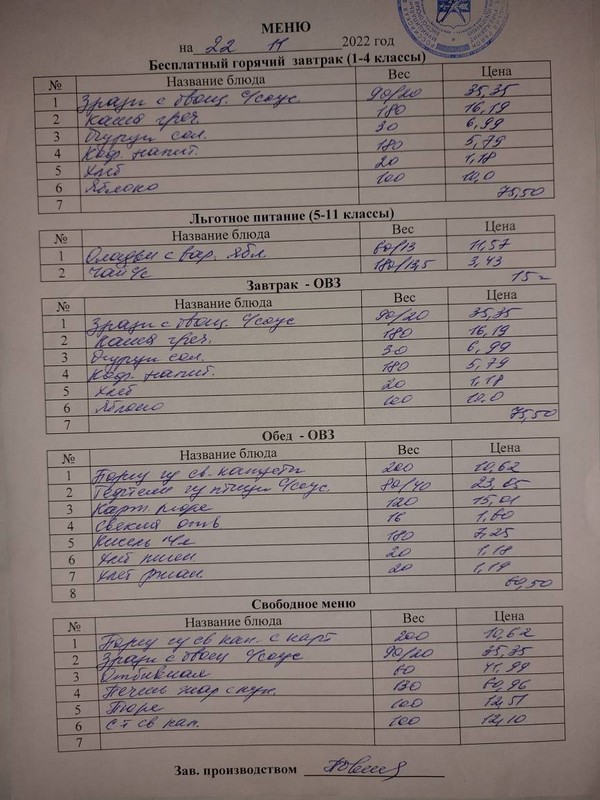 МЕНЮ
на 22 11 2022 год
Бесплатный горячий завтрак (1-4 классы)
№ Название блюда Вес Цена
1 Зрази с овощ. ч/соус. 90/20 35,35
2 каша греч. 180 16,19
3 Огурцы сол. 30 6,99
4 Коф. напит. 180 5,79
5 хлеб 20 1,18
6 Яблоко 100 10,0
7 75,50
Льготное питание (5-11 классы)
№ Название блюда Вес Цена
1 Оладьи с вар. ябл. 60/13 11,57
2 чай 180/13,5 3,43
15
Завтрак - ОВЗ
№ Название блюда Вес Цена
1 Зрази с овощ. ч/соус 90/20 35,35
2 каша греч. 180 16,19
3 Огурцы сол. 30 6,99
4 Коф. напит. 180 5,79
5 хлеб 20 1,18
6 Яблоко 100 10.0
7 75,50
Обед - ОВЗ
№ Название блюда Вес Цена
1 Борщ св. капусты 200 10,62
2 Тефтели птицы ч/соус. 80/40 23,05
3 Карт. пюре 120 15,01
4 Свекла отв 16 1,80
5 Кисель 180 7,25
6 хлеб пшен 20 1,18
7 хлеб ржан. 20 1,19
8 60,50
Свободное меню
№ Название блюда Вес Цена
1 Борщ св кап. с карт 200 10,62
2 Зрази с овощ ч/соус 90/20 35,35
3 Отбивная 80 41,99
4 Печень жар с лук. 130 60,96
5 Пюре 100 12,51
6 С-т св кап. 100 12,10
7
Зав. производством